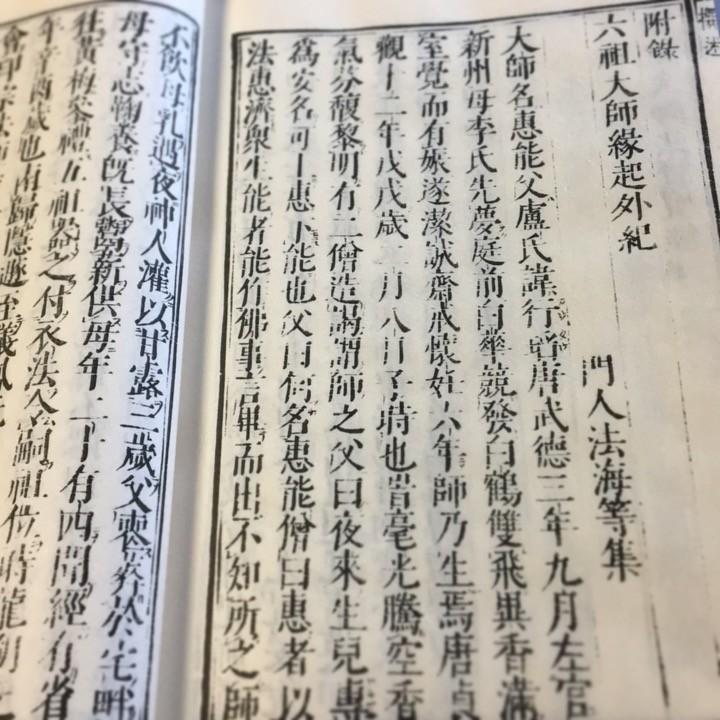 附錄
六祖大師緣起外紀
門人法海等集
大師名惠能父盧氏諱行瑫唐武德三年九月左官
新州母李氏先夢庭前白華競發白鶴雙飛異香滿
室覺而有娠遂潔誠齋戒懷妊六年師乃生焉唐貞
觀十二年戊戌歲二月八日子時也時毫光騰空香
氣芬馥黎明有二僧造謁謂師之父曰夜來生兒專
為安名可上惠下能也父曰何名惠能僧曰惠者以
法惠濟眾生能者能作佛事言畢而出不知所之師
不飲母乳遇夜神人灌以甘露三歲父喪葬於宅畔
母守志鞠養既長鬻薪供母年二十有四聞經有省
往黃梅參禮五祖器之付衣法令嗣祖位時龍朔
年辛酉歲也南歸隱遯至儀鳳元
會印宗法師